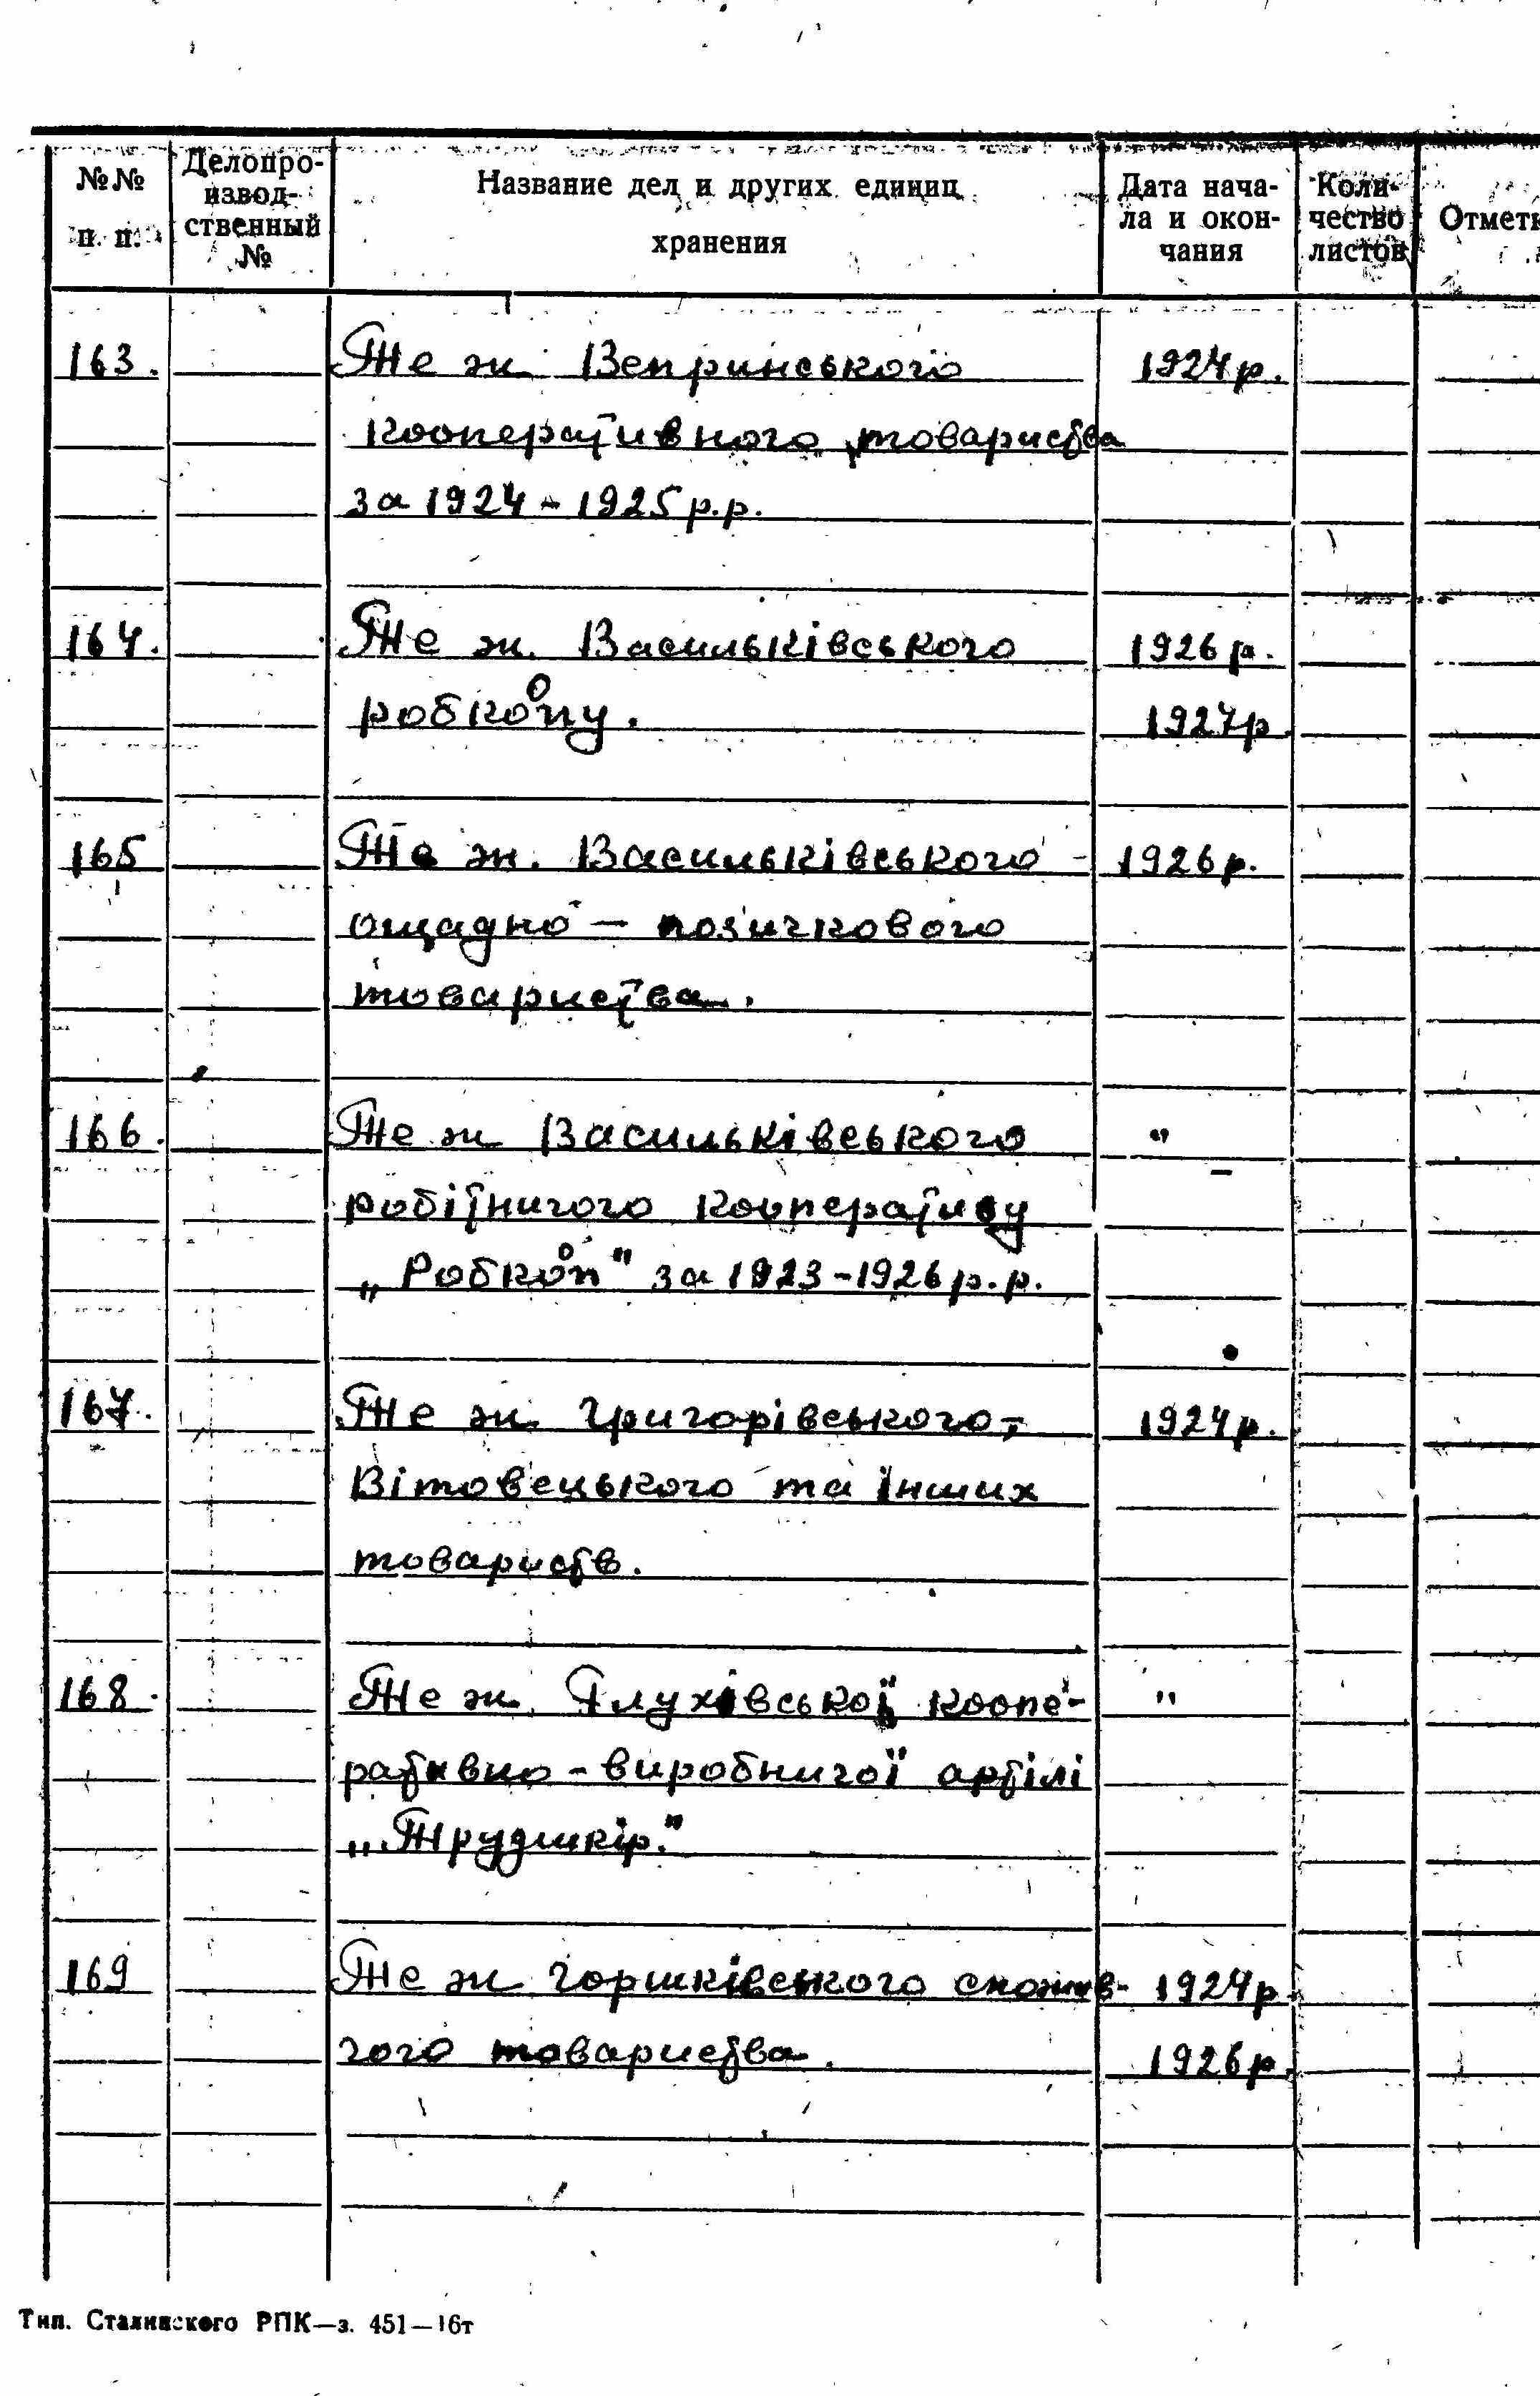 №№ п. п.
Делопро-
извод-
ственный
№
Название дел и других единиц
хранения
Дата нача-
ла и окон-
чания
Коли-
чество
листов
Отметк
163. Те ж Вепринського 1924 р.
кооперативного товариства
за 1924 - 1925 р.р.
164. Те ж. Васильківського 1926 р.
робкопу. 1927 р.
165 Те ж. Васильківського 1926 р.
ощадно - позичкового
товариства.
166. Те ж Васильківського "
робітничого кооперативу
„Робкоп" за 1923-1926 р.р.
167. Те ж Григорівського, 1924 р.
Вітовецького та інших
товариств.
168. Те ж Глухівської коопе- "
ративно-виробничої артілі
„Трудшкір."
169 Те ж Горшківського спожив- 1924 р.
чого товариства. 1926 р.
Тип. Сталинского РПК—з. 451—16т